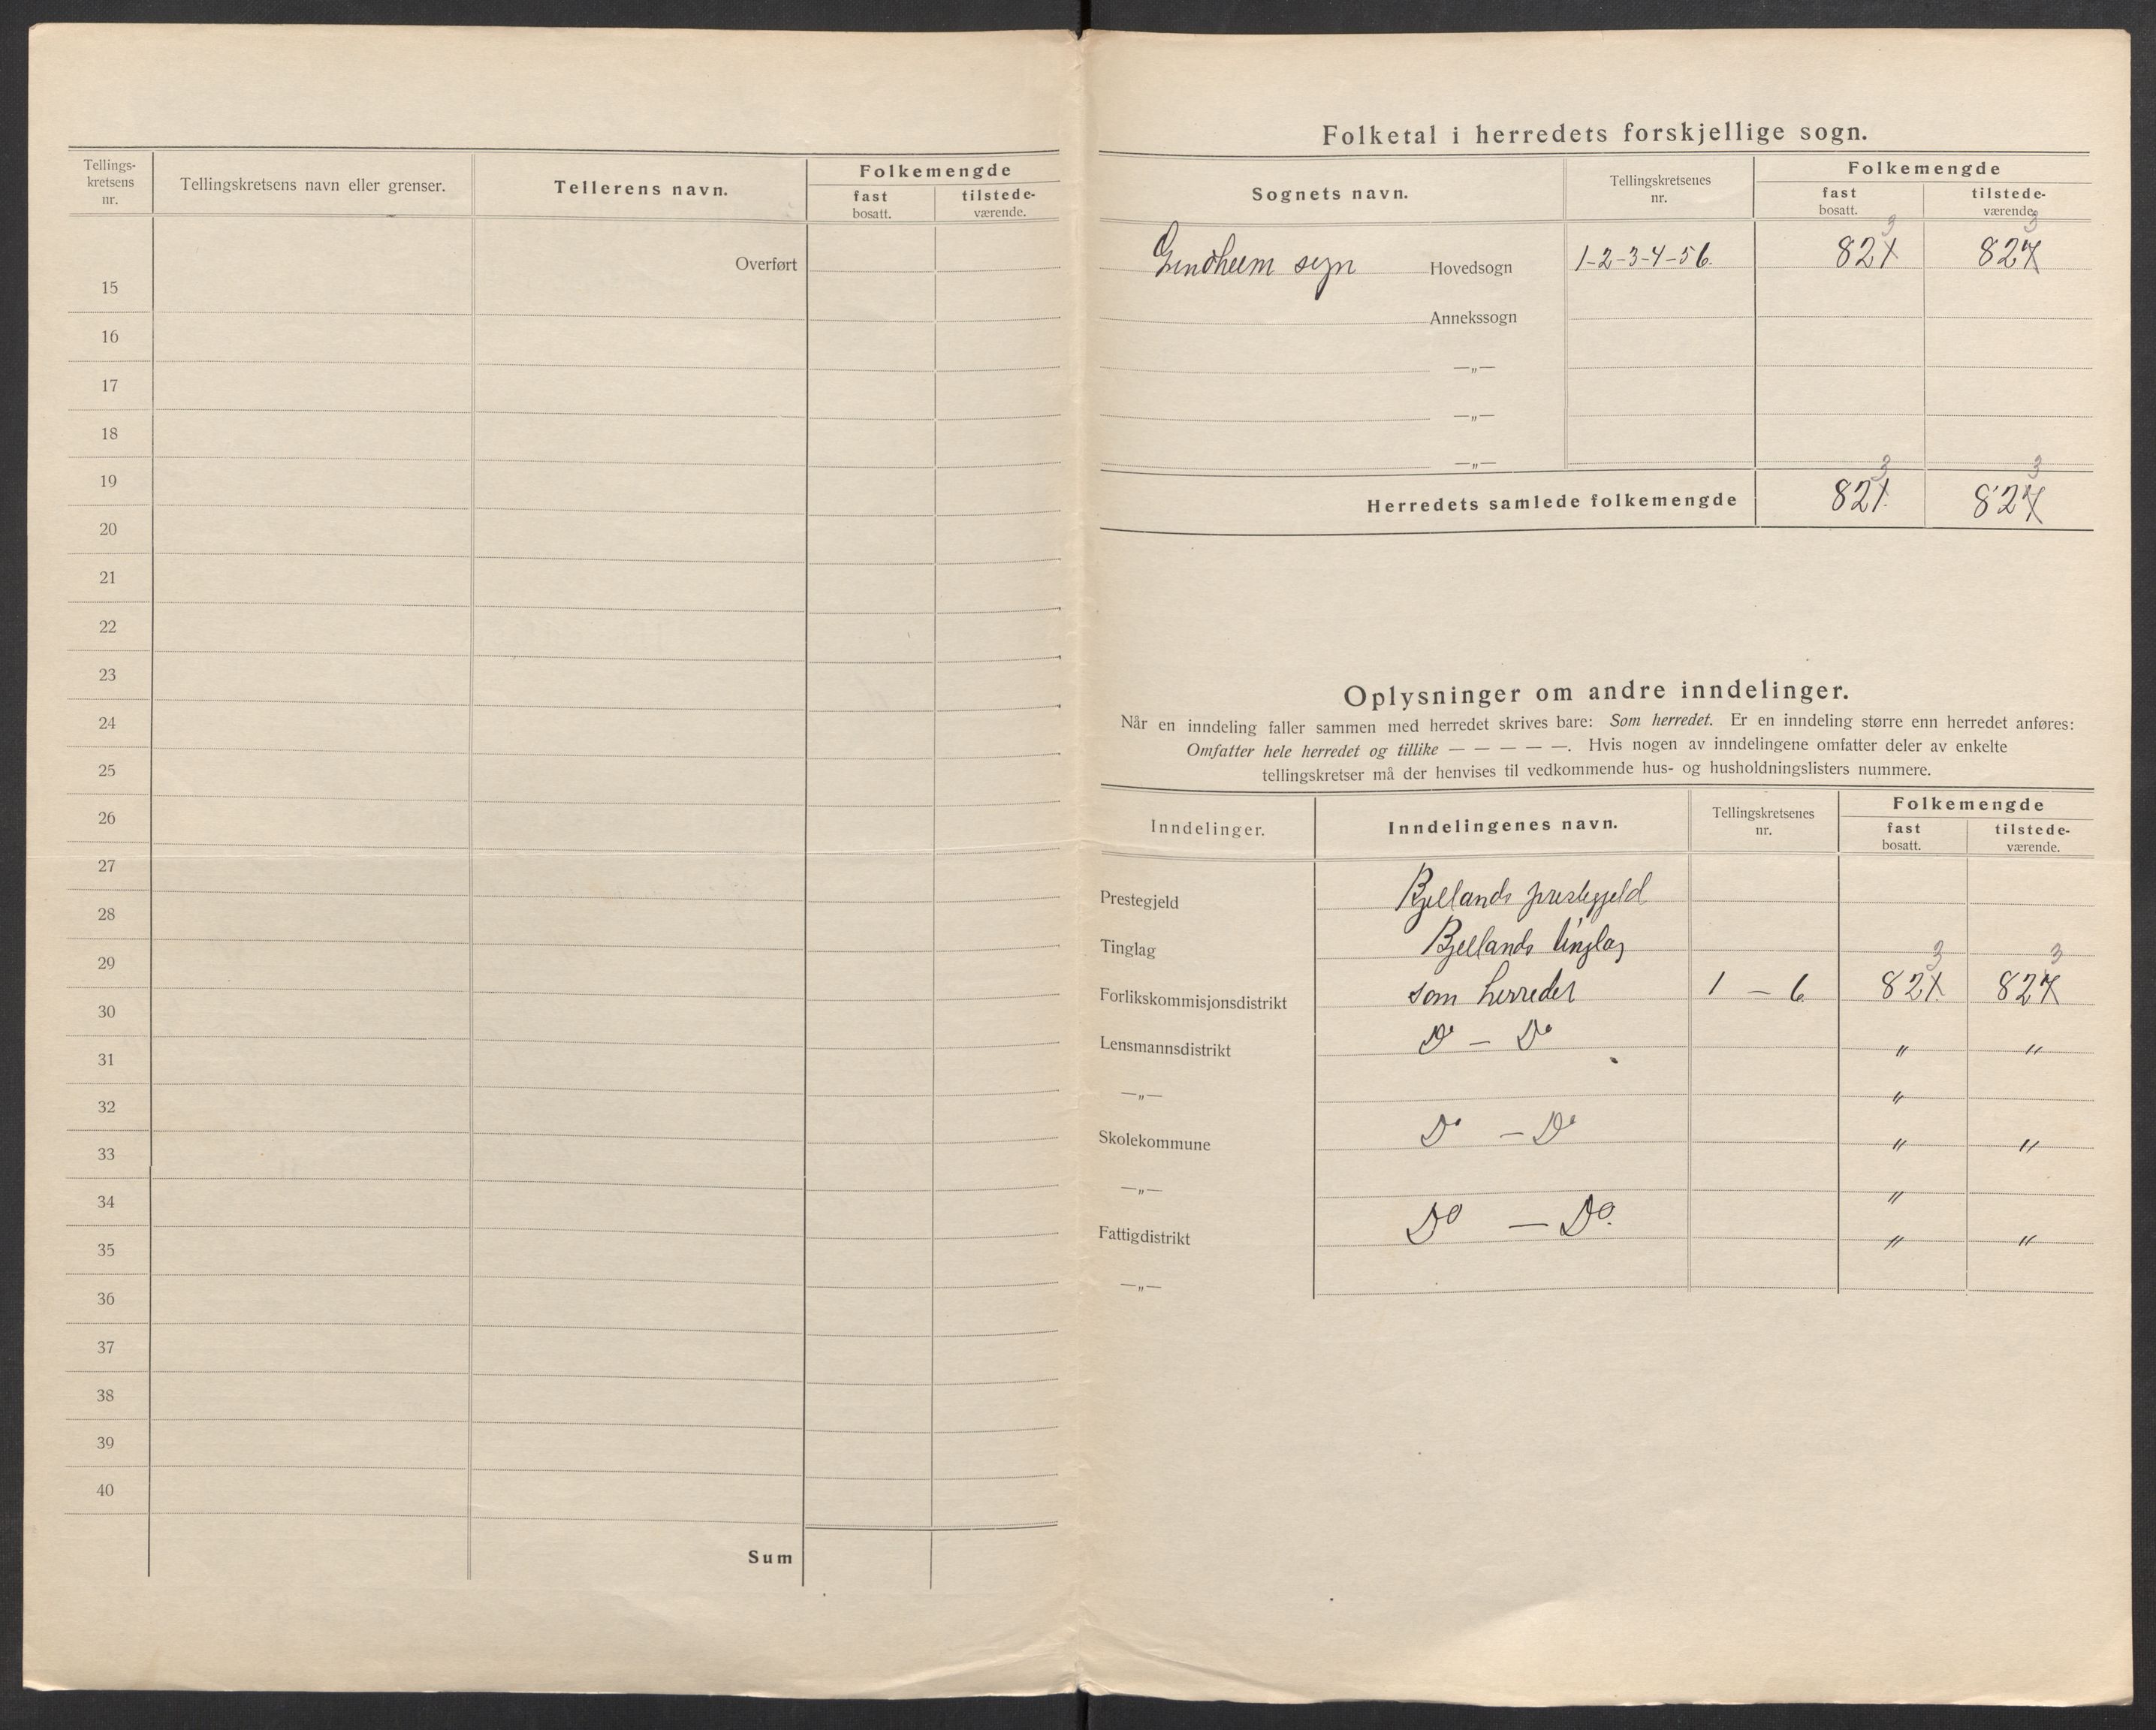 Tellings-
kretsens
nr.
Tellingskretsens navn eller grenser.
Tellerens navn.
Folkemengde
fast
bosatt.
tilstede-
værende.
Overført
15
16
17
18
19
20
21
22
23
24
25
26
27
28
29
30
31
32
33
34
35
36
37
38
39
40
Sum
Folketal i herredets forskjellige sogn.
Sognets navn.
Tellingskretsenes
nr.
Folkemengde
fast
bosatt.
tilstede-
værende.
3 3
Grindheim sogn Hovedsogn 1-2-3-4-5 6. 821 827
Annekssogn
—„—
—„—
—„—
3 3
Herredets samlede folkemengde 821. 827
Oplysninger om andre inndelinger.
Når en inndeling faller sammen med herredet skrives bare: Som herredet. Er en inndeling større enn herredet anføres:
Omfatter hele herredet og tillike — — — — —. Hvis nogen av inndelingene omfatter deler av enkelte
tellingskretser må der henvises til vedkommende hus- og husholdningslisters nummere.
Inndelinger.
Inndelingenes navn.
Tellingskretsenes
nr.
Folkemengde
fast
bosatt.
tilstede-
værende.
Prestegjeld Bjellands prestegjeld
Tinglag Bjellands tinglag
3 3
Forlikskommisjonsdistrikt som herredet 1 — 6 821. 827
Lensmannsdistrikt Do — Do " "
—„— "
Skolekommune Do — Do " "
—„— "
Fattigdistrikt Do — Do. " "
—„—